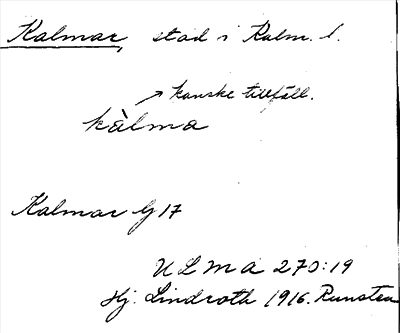 Kalmar, stad i Kalm. l.
kanske tillfäll.
kàlma
Kalmar G 17
ULMA 270:19
Hj. Lindroth 1916. Runsten